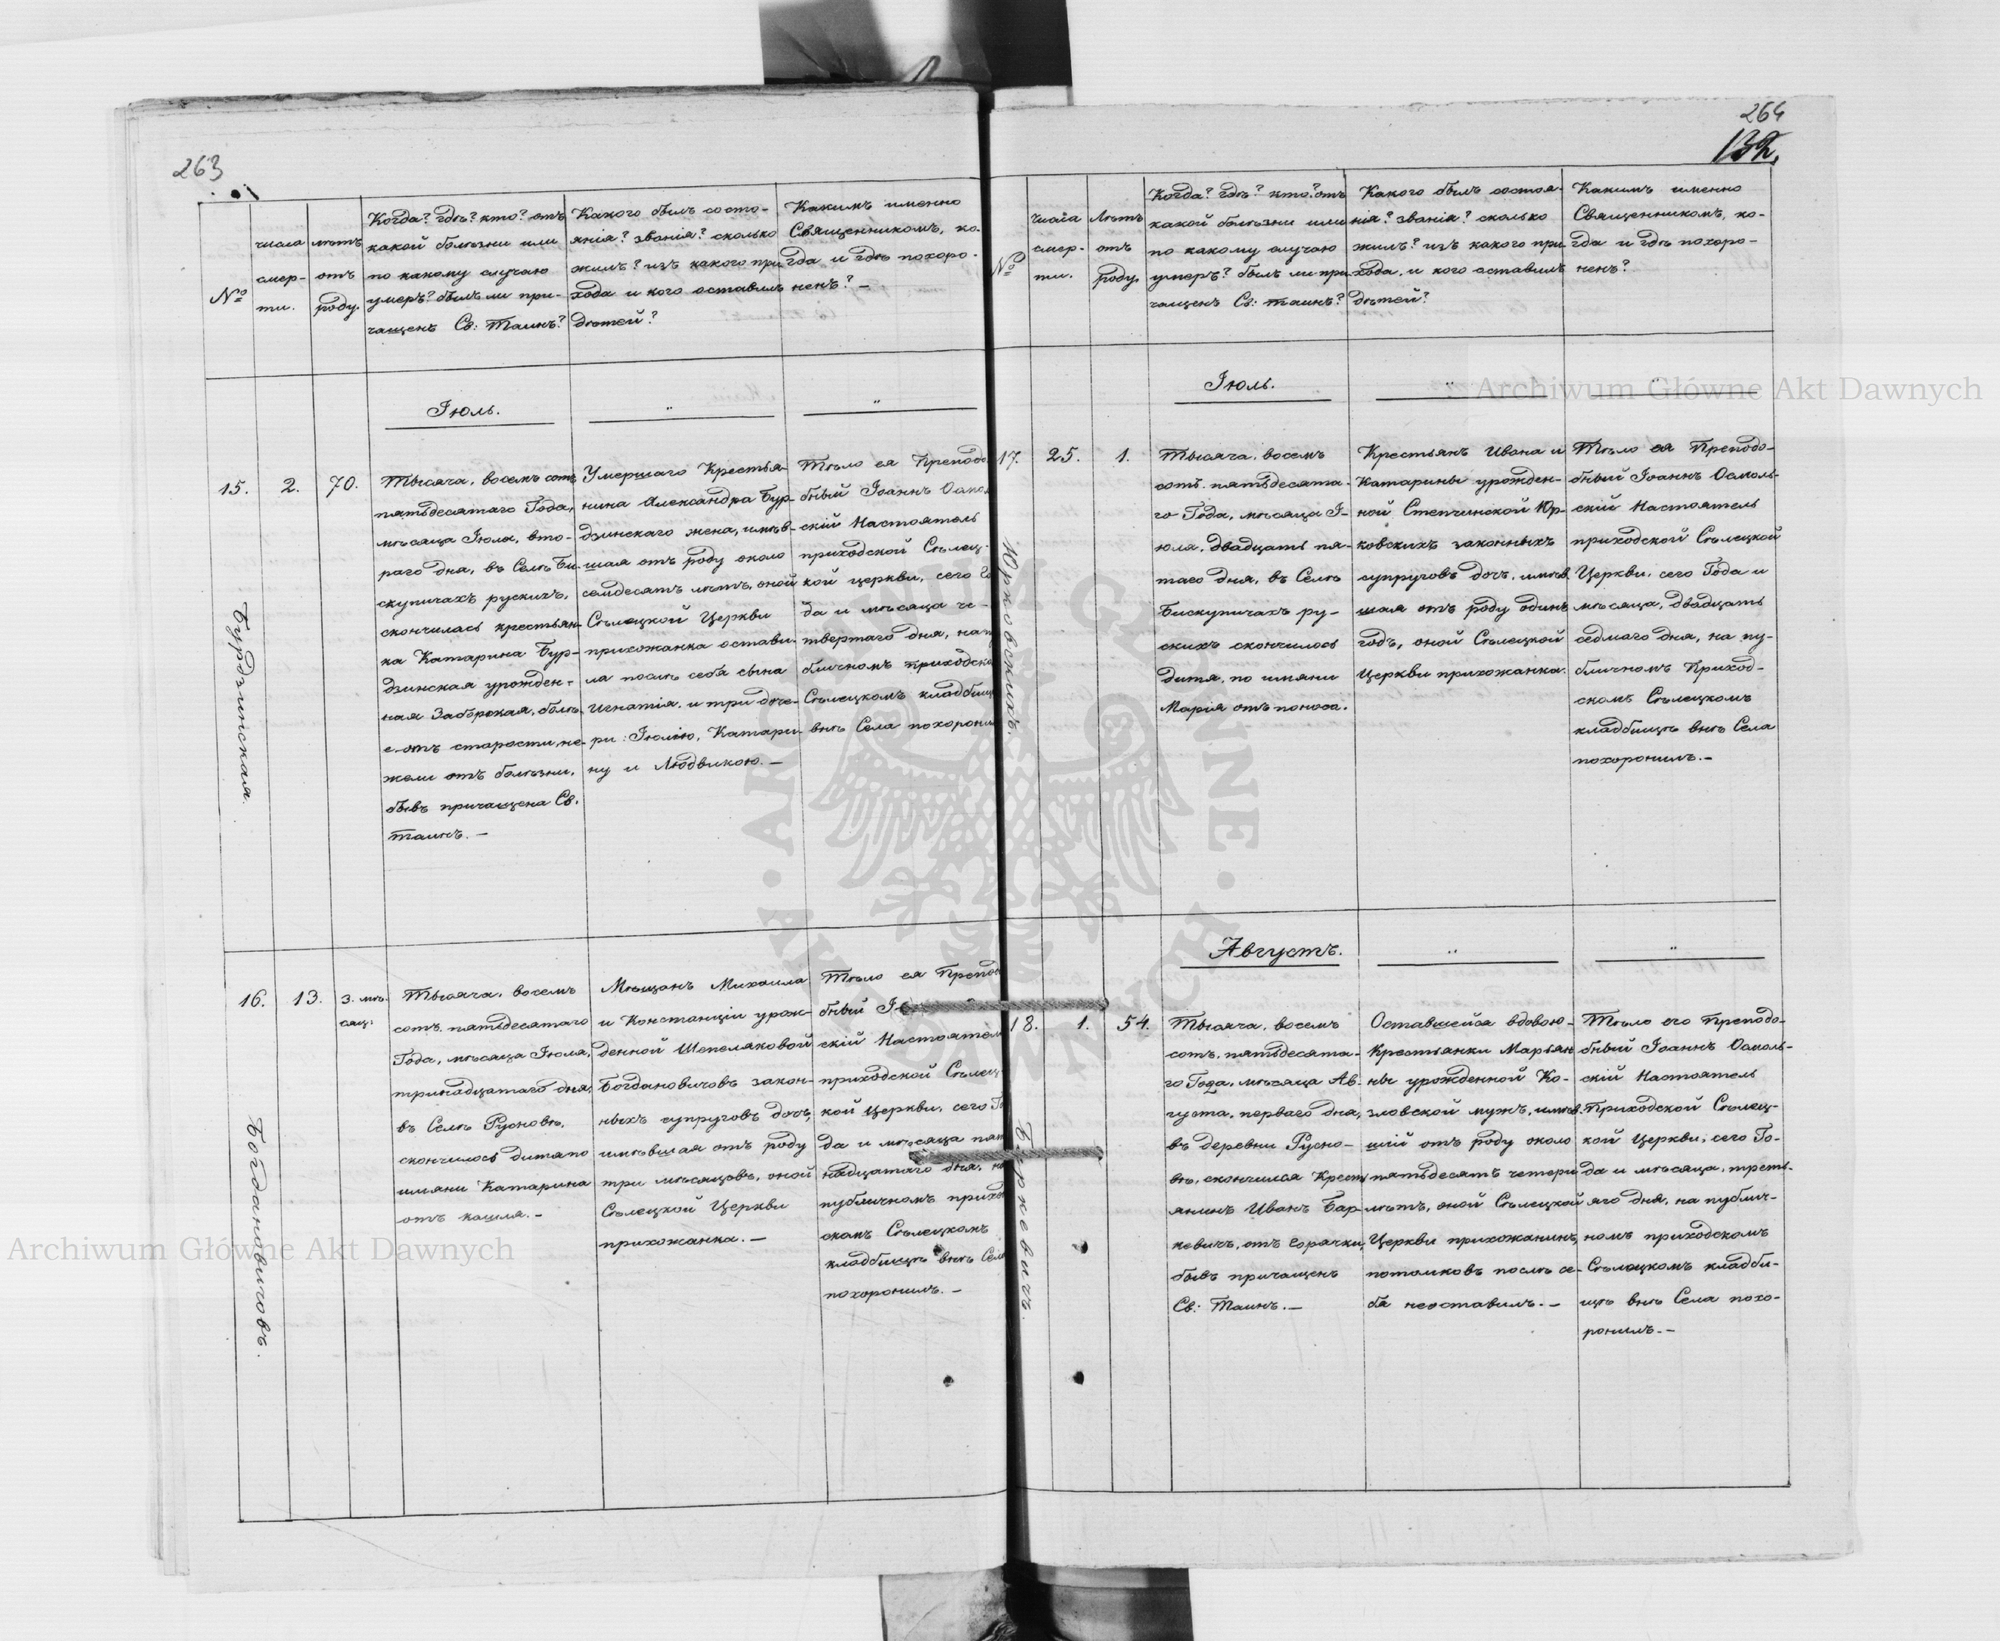 263
№
числа смер- ти.
лѣтъ отъ роду.
Когда? гдѣ? кто? отъ
какой болѣзни или
по какому случаю
умеръ? былъ ли при-
чащенъ Св: Таинъ?
Какого былъ состо-
янія? званія? сколько
жилъ? изъ какого при-
хода и кого оставилъ
дѣтей?
Какимъ именно
Священникомъ, ко-
гда и гдѣ похоро-
ненъ? —
Іюль.
"
"
15.
2.
70.
Бурдзинская.
Тысяча, восемь сотъ
пятьдесятаго Года,
мѣсяца Іюля, вто-
раго дня, въ Селѣ Би-
скупичахъ рускихъ,
скончилась крестьян-
ка Катарина Бур-
дзинская урожден-
ная Заборская, болѣ-
е отъ старости, не-
жели отъ болѣзни,
бывъ причащена Св.
Таинъ. —
Умершаго Крестья-
нина Александра Бур-
дзинскаго жена, имѣв-
шая отъ роду около
семдесятъ лѣтъ, оной
Сѣлецкой Церкви
прихожанка остави-
ла послѣ себя сына
Игнатія, и три доче-
ри: Іюлію, Катари-
ну и Людвикою. —
Тѣло ея Преподо
бный Іоаннъ Осмол
скій Настоятель
приходской Сѣлец-
кой церкви, сего Го
да и мѣсяца че-
твертаго дня, на п
бличномъ приходско
Сѣлецкомъ кладбищ
внѣ Села похорони
16.
13.
3. мѣ-
сяц:
Богдановичовъ.
Тысяча, восемь
сотъ пятьдесятаго
Года, мѣсяца Іюля,
тринадцатаго дня,
въ Селѣ Русновѣ,
скончилось дитя по
имяни Катарина
отъ кашля. —
Мѣщанъ Михаила
и Констанціи урож-
денной Шепеляковой
Богдановичовъ закон-
ныхъ супруговъ дочь,
имѣвшая отъ роду
три мѣсяцовъ, оной
Сѣлецкой Церкви
прихожанка. —
Тѣло ея Препо
бный І
скій Настоятел
приходской Сѣлец
кой Церкви, сего Го
да и мѣсяца пят
надцатаго дня, н
публичномъ прихо
скомъ Сѣлецкомъ
кладбищѣ внѣ Сел
похоронилъ. —
264
132.
№
числа смер- ти.
лѣтъ отъ роду.
Когда? гдѣ? кто? отъ
какой болѣзни или
по какому случаю
умеръ? былъ ли при-
чащенъ Св: таинъ?
Какого былъ состоя-
нія? званія? сколько
жилъ? изъ какого при
хода, и кого оставилъ
дѣтей?
Какимъ именно
Священникомъ, ко-
гда и гдѣ похоро-
ненъ?
Іюль.
"
"
17.
25.
1.
Юрковскихъ.
Тысяча, восемь
сотъ, пятьдесята-
го Года, мѣсяца І-
юля, двадцать пя-
таго дня, въ Селѣ
Бискупичахъ ру-
скихъ скончилось
дитя, по имяни
Марія отъ поноса.
Крестьянъ Ивана и
Катарины урожден-
ной Степчинской Юр-
ковскихъ законныхъ
супруговъ дочь, имѣв.
шая отъ роду одинъ
годъ, оной Сѣлецкой
Церкви прихожанка.
Тѣло ея Преподо-
бный Іоаннъ Осмоль-
скій Настоятель
приходской Сѣлецкой
Церкви, сего Года и
мѣсяца, двадцать
седмаго дня, на пу-
бличномъ Приход-
скомъ Сѣлецкомъ
кладбищѣ внѣ Села
похоронилъ. —
Августъ.
"
"
18.
1.
54.
Баркевичъ.
Тысяча, восемь
сотъ, пятьдесята-
го Года, мѣсяца Ав-
густа, перваго дня,
въ деревни Русно-
вѣ, скончился Крест
янинъ Иванъ Бар-
кевичъ, отъ горячки,
бывъ причащенъ
Св: Таинъ. —
Оставшейся вдовою-
Крестьянки Марьян-
ны урожденной Ко-
зловской мужъ, имѣв.
шій отъ роду около
пятьдесятъ четери
лѣтъ, оной Сѣлецкой
Церкви прихожанинъ,
потомковъ послѣ се-
бя неоставилъ. —
Тѣло его Преподо-
бный Іоаннъ Осмоль-
скій Настоятель
Приходской Сѣлец-
кой Церкви, сего Го-
да и мѣсяца, треть-
яго дня, на публич-
номъ приходскомъ
Сѣлецкомъ кладби-
щѣ внѣ Села похо-
ронилъ. —
Archiwum Główne Akt Dawnych
Archiwum Główne Akt Dawnych
ARCHIWUM GŁÓWNE AKT DAWNYCH